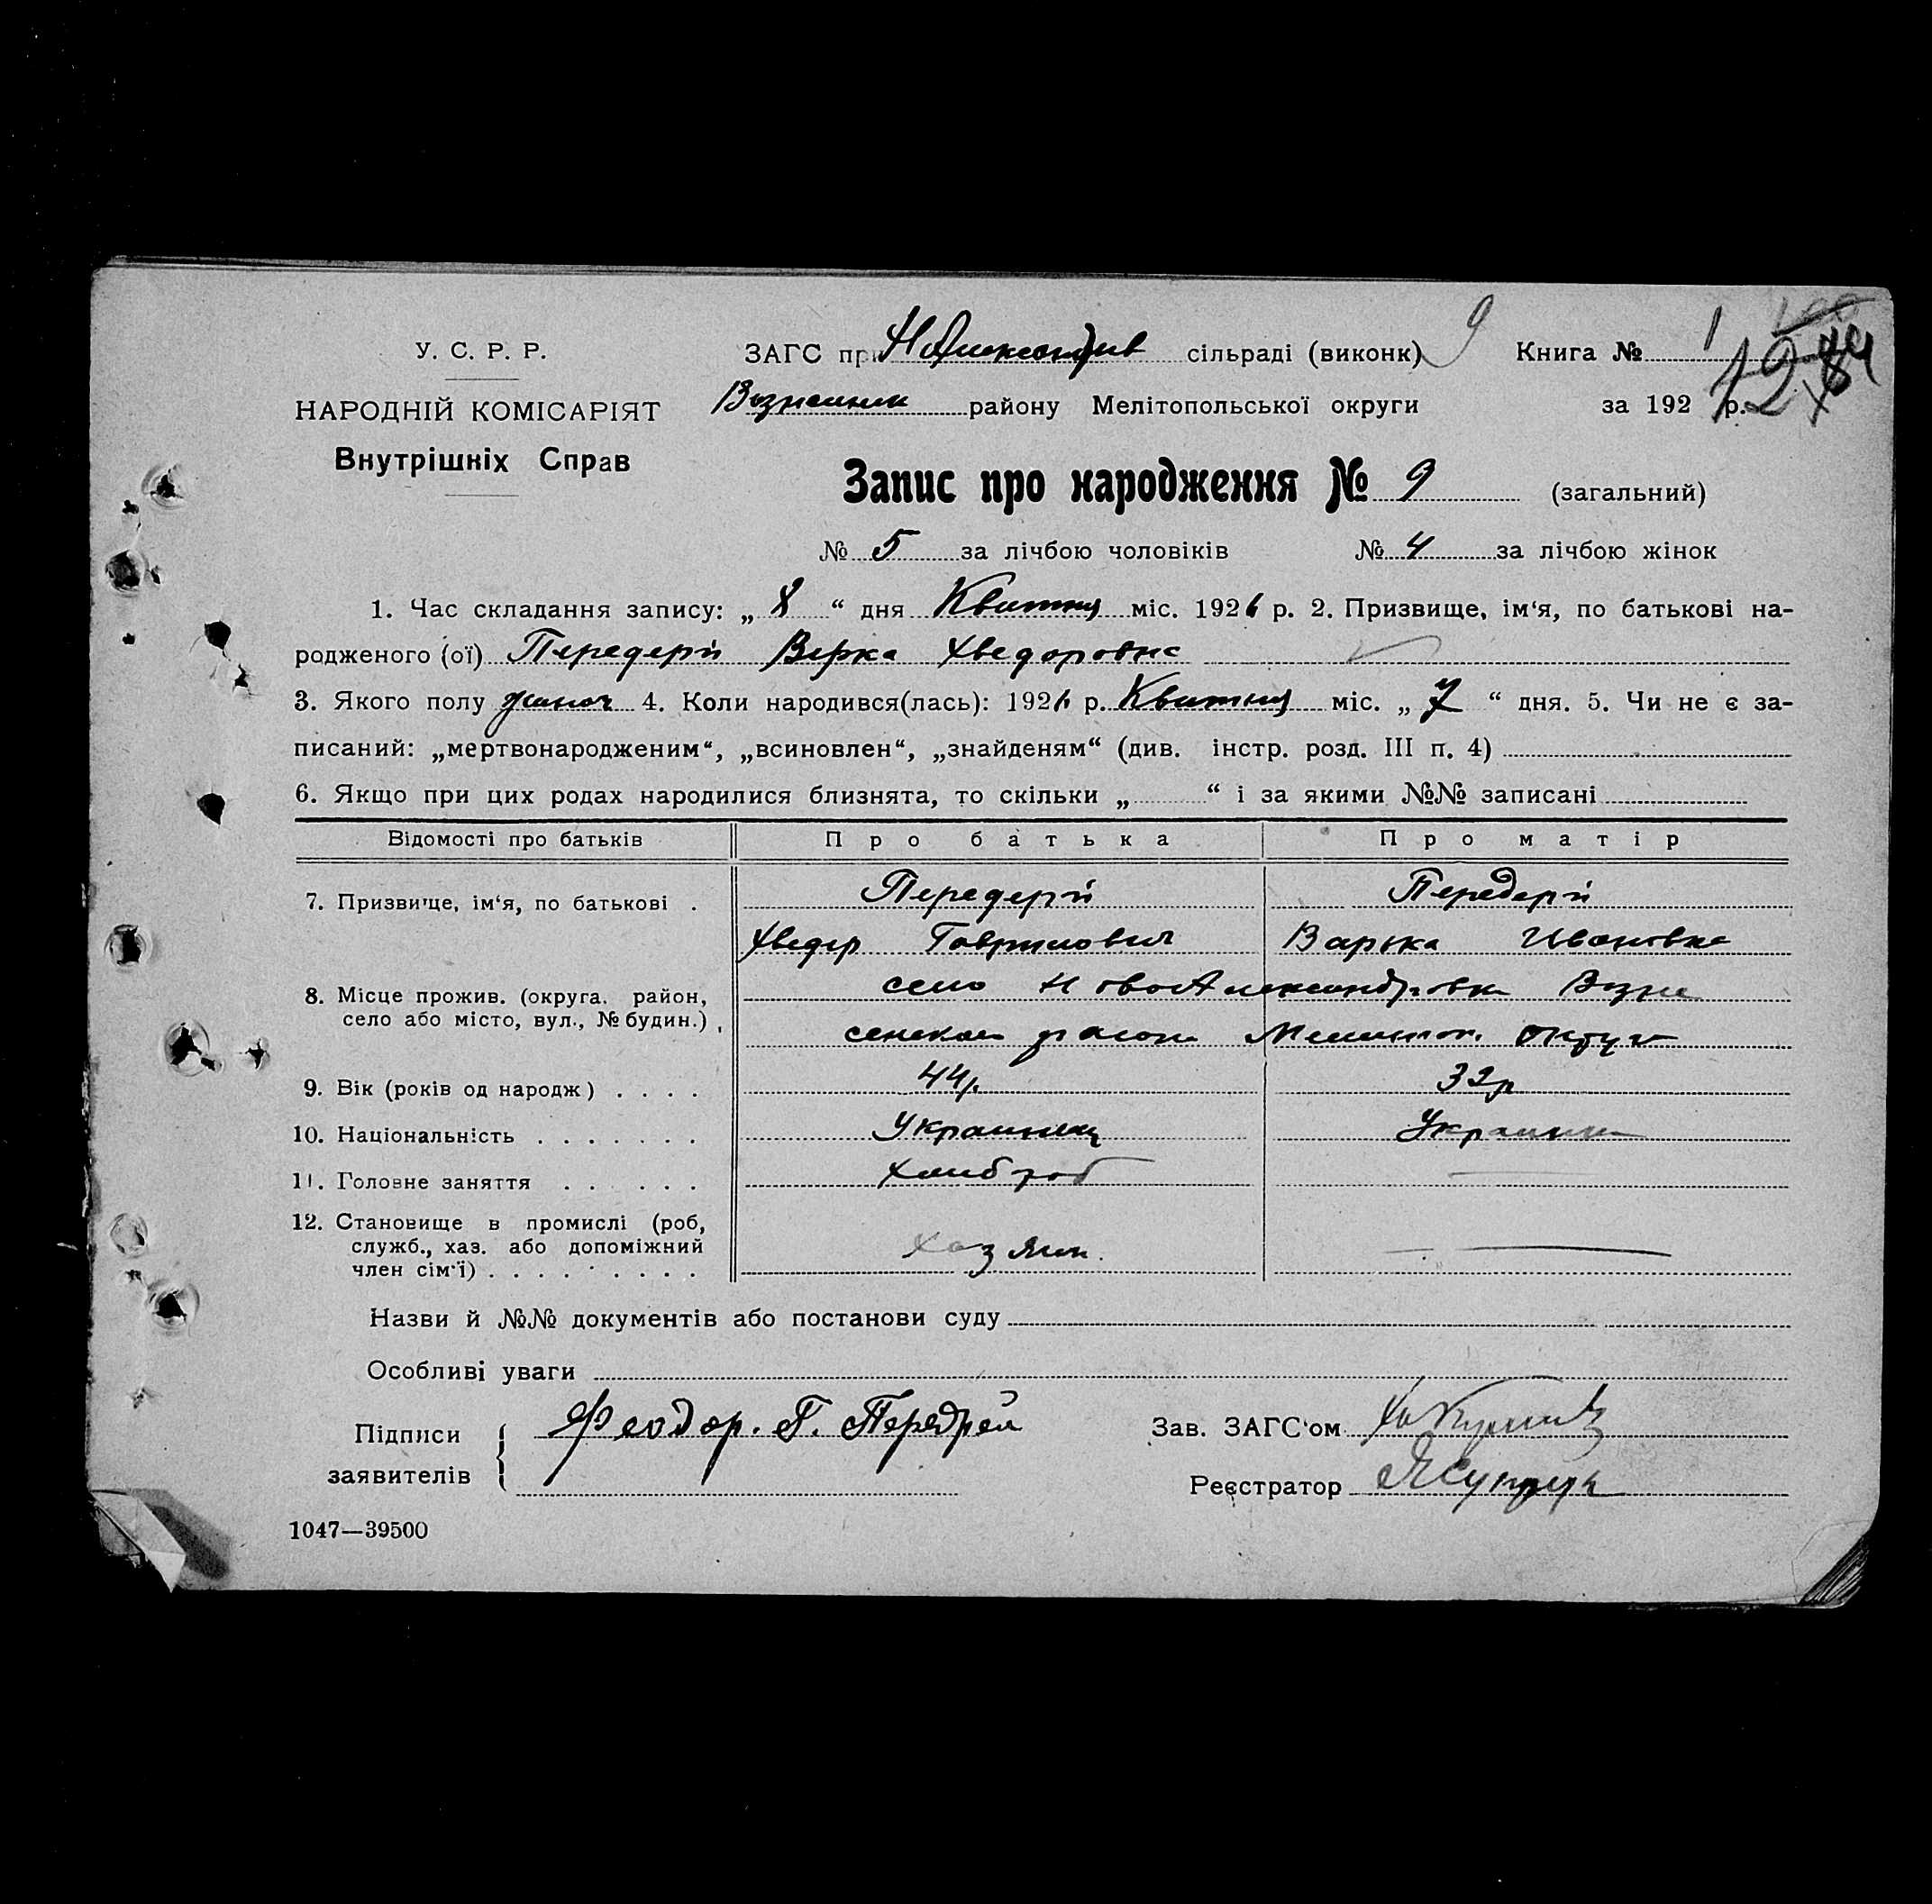 У. С. Р. Р.
НАРОДНІЙ КОМІСАРІЯТ
Внутрішніх Справ
ЗАГС при Н Александрів сільраді (виконк) 9 Книга № 1
району Мелітопольської округи за 192 р.
Запис про народження № 9 (загальний)
№ 5 за лічбою чоловіків № 4 за лічбою жінок
1. Час складання запису: „ 8 “ дня Квитня міс. 1926 р. 2. Призвище, ім‘я, по батькові на-
родженого (ої) Передерій Верка Хведоровна
3. Якого полу жиноч 4. Коли народився(лась): 1926 р. Квитня міс. „ 7 “ дня. 5. Чи не є за-
писаний: „мертвонародженим“, „всиновлен“, „знайденям“ (див. інстр. розд. III п. 4)
6. Якщо при цих родах народилися близнята, то скільки „ “ і за якими №№ записані
Відомості про батьків Про батька Про матір
7. Призвище, ім‘я, по батькові . Передерій Передерій
Хведер Гаврилович Варька Ивановна
8. Місце прожив. (округа, район, село або місто, вул., № будин.) село НовоАлександровка Возне
сенском району Мелитоп. округи
9. Вік (років од народж) . . . . 44р. 32р
10. Національність . . . . . . . Украинец Украинка
11. Головне заняття . . . . . . Хлиброб
12. Становище в промислі (роб,
служб., хаз. або допоміжний
член сім‘ї) . . . . . . . . . Хазяин.
Назви й №№ документів або постанови суду
Особливі уваги
Підписи заявителів Феодор. Г. Передрей
Зав. ЗАГС‘ом
Реєстратор
1047—39500